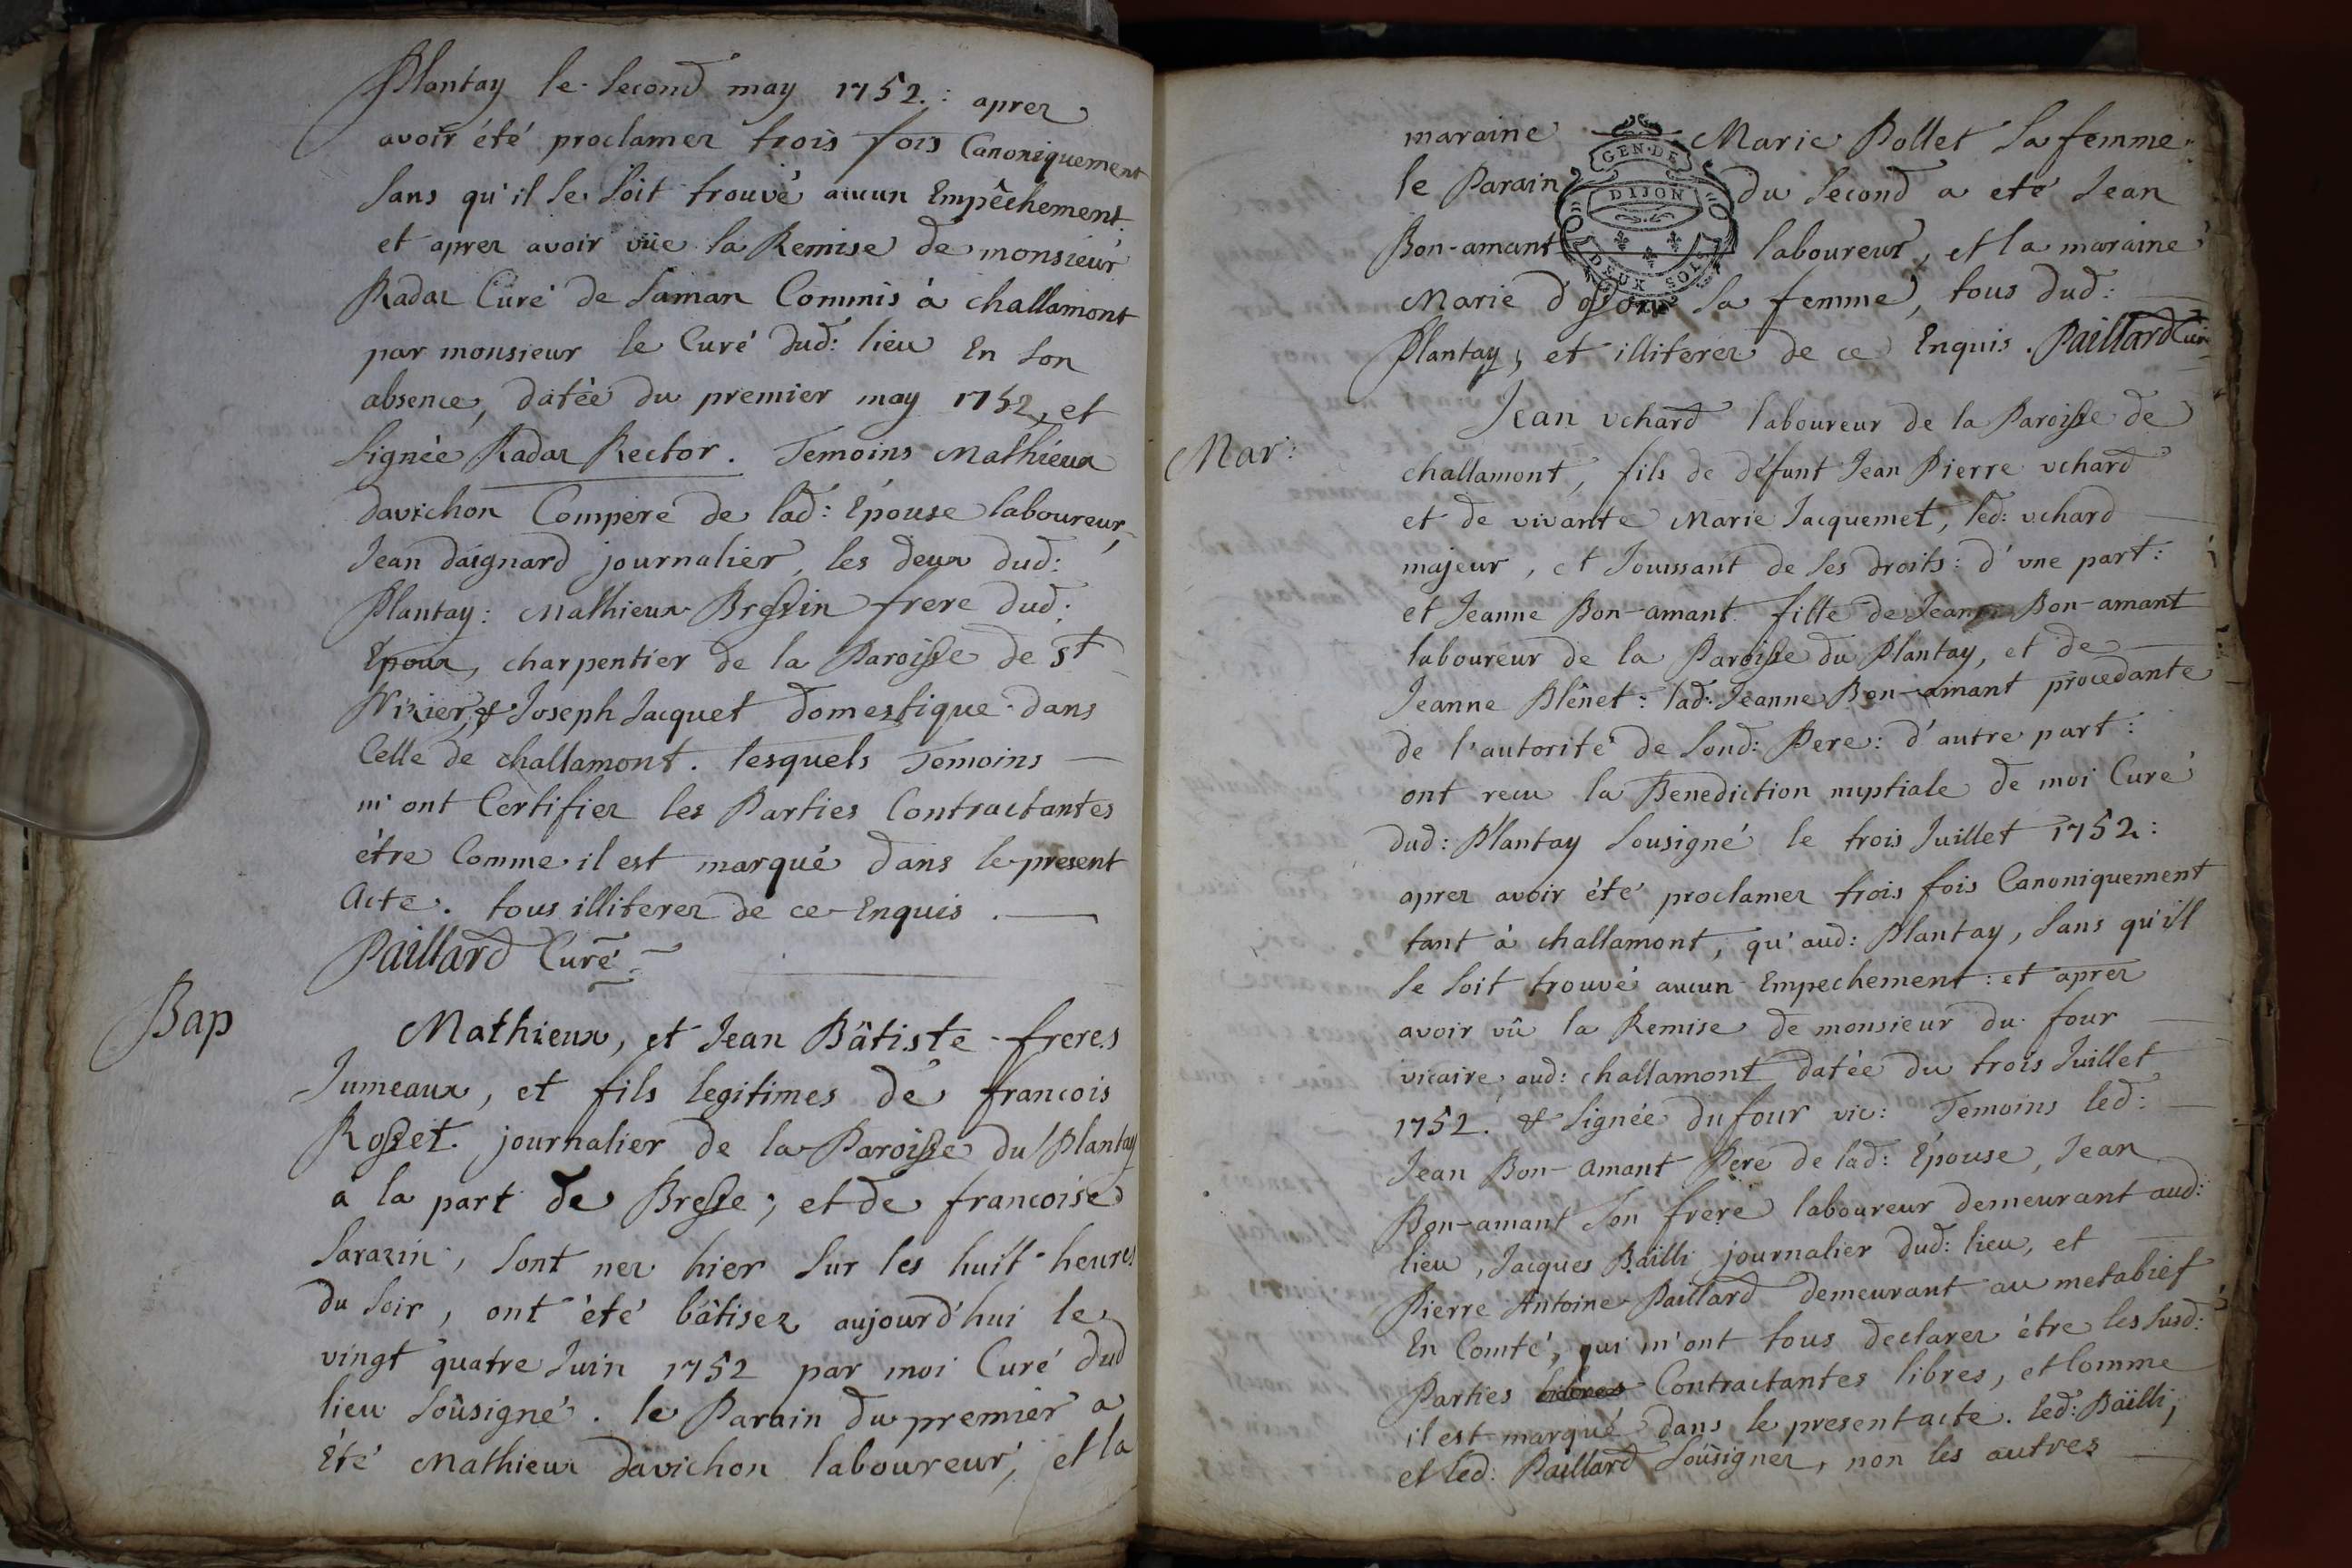 Plantay le second may 1752 : aprez
avoir été proclamez trois fois Canoniquement
sans qu'il se soit trouvé aucun Empêchement.
et aprez avoir vüe la Remise de monsieur
Radaz Curé de Saman Commis à challamont
par monsieur le Curé dud: lieu En son
absence, datée du premier may 1752, et
signée Radaz Rector. Temoins Mathieux
davichon Compere de lad: Epouse laboureur,
Jean daignard journalier, les deux dud:
Plantay : Mathieux Bressin frere dud:
Epoux, charpentier de la Paroisse de St
Nizier, & Joseph Jacquet domestique dans
Celle de challamont. lesquels Temoins
m'ont Certifiez les Parties Contractantes
être Comme il est marqué dans le present
Acte. tous illiterez de ce Enquis.
Paillard Curé
Bap
Mathieux, et Jean Bâtiste freres
Jumeaux, et fils legitimes de francois
Rosset journalier de la Paroisse du Plantay
à la part de Bresse ; et de francoise
Sarazin, sont nez hier sur les huit heures
du soir, ont été bâtisez aujourd'hui le
vingt quatre Juin 1752 par moi Curé dud
lieu soûsigné. le Parain du premier a
Eté Mathieux davichon laboureur, et la
maraine Marie Pollet sa femme
GEN. DE
le Parain du second a eté Jean
DIJON
Bon-amant laboureur, et la maraine
DEUX SOLS
Marie sa femme, tous dud:
Plantay, et illiterez de ce Enquis. Paillard Curé
Mar:
Jean vchard laboureur de la Paroisse de
challamont, fils de défunt Jean Pierre vchard
et de vivante Marie Jacquemet, led: vchard
majeur, et Jouissant de ses droits : d'vne part :
et Jeanne Bon-amant fille de Jean Bon-amant
laboureur de la Paroisse du Plantay, et de
Jeanne Blênet : lad: Jeanne Bon-amant procedante
de l'autorité de sond: Pere : d'autre part :
ont recu la Benediction nuptiale de moi Curé
dud: Plantay sousigné le trois Juillet 1752 :
aprez avoir été proclamez trois fois Canoniquement
tant à challamont, qu'aud: Plantay, sans qu'il
se soit trouvé aucun Empechement : et aprez
avoir vû la Remise de monsieur du four
vicaire aud: challamont datée du trois Juillet
1752. & signée du four vic: Temoins led:
Jean Bon-amant Pere de lad: Epouse, Jean
Bon-amant son frere laboureur demeurant aud:
lieu, Jacques Bailli journalier dud: lieu, et
Pierre Antoine Paillard demeurant au metabief
En Comté, qui m'ont tous declarez être les susd:
Parties Contractantes libres, et Comme
il est marqué dans le present acte. led: Bailli,
et led: Paillard soûsignez, non les autres